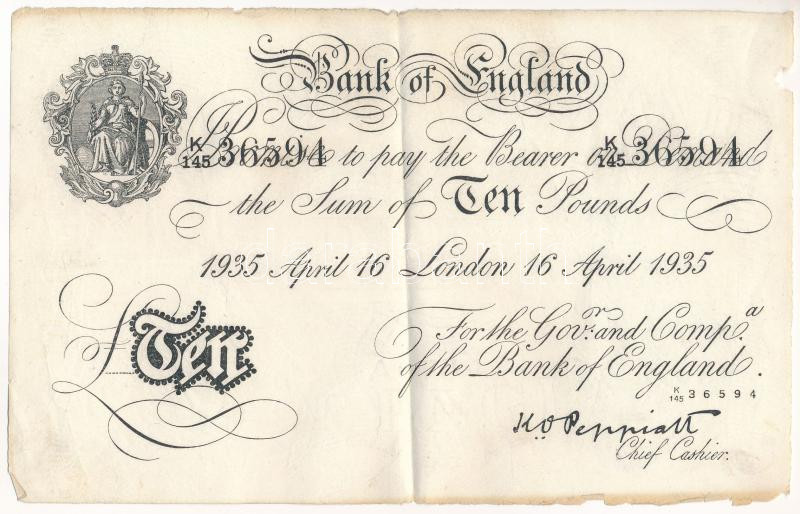 Bank of England
K 145 36594 K 145 36594
I Promise to pay the Bearer on Demand
the Sum of Ten Pounds
1935 April 16 London 16 April 1935
£Ten
For the Govr. and Compa.
of the Bank of England.
K 145 36594
K.O. Peppiatt
Chief Cashier.